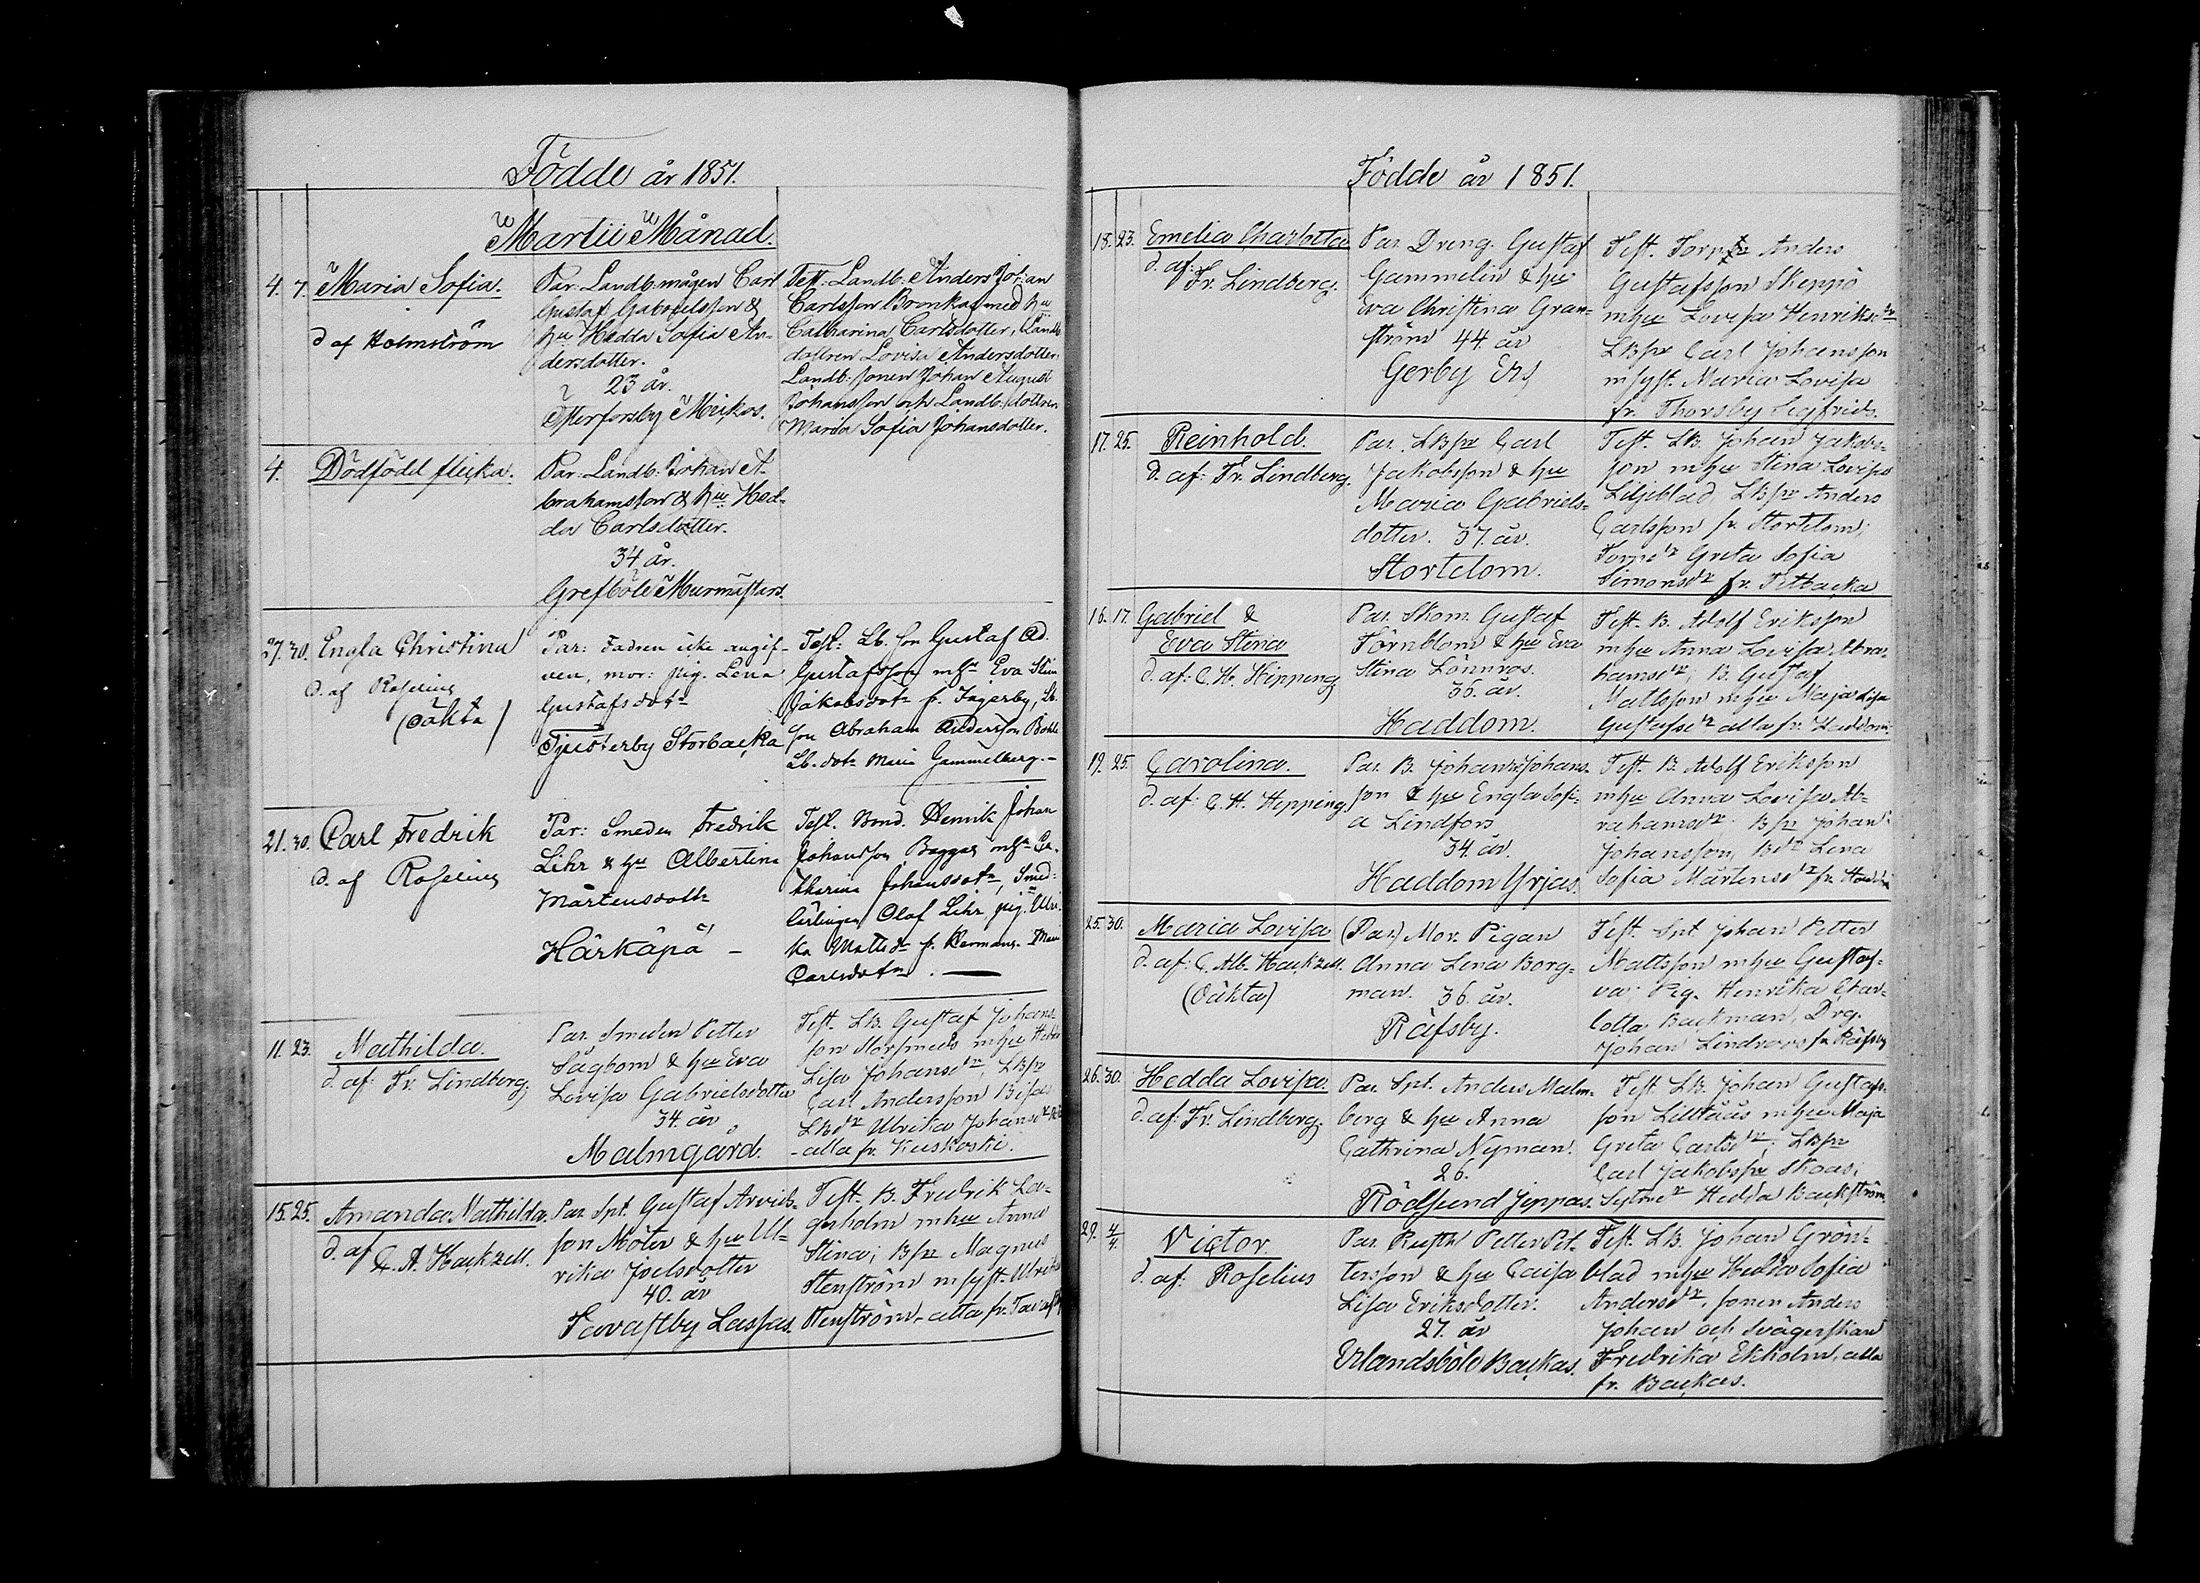 Födde år 1851.
Martii Månad.
4. 7. Maria Sofia.
d af Holmström
Par. Landb.mågen Carl
Gustaf Gabrielsson &
hu Hedda Sofia An-
dersdotter.
23 år.
Isterforsby Meikos.
Test: Landb. Anders Johan
Carlsson Bronkas med hu
Catharina Carlsdotter, Landb.
dottren Lovisa Andersdotter
Landb: sonen Johan August
Johansson och Landb. dottren
Maria Sofia Johansdotter.
4. Dödfödd flicka.
Par. Landb. Johan A-
brahamsson & hu Hed-
da Carlsdotter.
34 år.
Grefböle Murmästars.
27. 30. Engla Christina
d. af Roselius
(oäkta)
Par: Fadren icke angif-
ven, mor: pig. Lena
Gustafsdotr
Tjusterby Storbacka
Test: Lb. son Gustaf Ad.
Gustafsson mhu Eva Stina
Jakobsdotr fr. Fagerby, Lb.
son Abraham Andersson Böhle
Lb. dotr Maria Gammelberg.
21. 30. Carl Fredrik
d. af Roselius
Par: Smeden Fredrik
Lihr & hu Albertina
Mårtensdottr
Härkäpä
Test. Bond. Henrik Johan
Johansson Baggas mhu Ca-
tharina Johansdotr, Smed:
lärlingen Olof Lihr, pig. Ulri-
ka Mattsdr fr. Hermans.
Carlsdotr.
11. 23. Mathilda.
d. af: Fr. Lindberg.
Par. Smeden Petter
Sågbom & hu Eva
Lovisa Gabrielsdotter
34. år
Malmgård.
Test. LB. Gustaf Johans-
son Storsmeds mhu Hedda
Lisa Johansdr, LBsn
Carl Andersson Bisa
LBdr Ulrika Johansdr
alla fr. Kuskoski.
15. 25. Amanda Mathilda.
d. af C. A. Hackzell.
Par. Spt. Gustaf Arvids-
son Möter & hu Ul-
rika Joelsdotter
40. år
Tavastby Lassas.
Test. B. Fredrik La-
gerholm mhu Anna
Stina; Bsn Magnus
Stenström m syst. Ulrika
Stenström, alla fr. Tavastby
Födde år 1851.
18. 23. Emelia Charlotta
d. af: Fr. Lindberg.
Par. Dreng. Gustaf
Gammelin & hu
Eva Christina Gran-
ström 44. år
Gerby Ers
Test. Torpsn Anders
Gustafsson Skeppö
mhu Lovisa Henriksdr
LBsn Carl Johansson
m syst. Maria Lovisa
fr. Thorsby Sigfrids.
17. 25. Reinhold.
d. af: Fr. Lindberg.
Par. LBsn Carl
Jakobsson & hu
Maria Gabriels-
dotter. 37. år.
Stortelom.
Test. LB. Johan Jakobs-
son mhu Stina Lovisa
Liljeblad LBsn Anders
Carlsson fr. Stortelom;
Torpdr Greta Sofia
Simonsdr fr. Tetbacka
16. 17. Gabriel &
Eva Stina
d. af: C. H. Hipping
Par. Skom. Gustaf
Törnblom & hu Eva
Stina Lönnros.
36. år.
Haddom.
Test. B. Adolf Eriksson
mhu Anna Lovisa Abra-
hamsdr; B. Gustaf
Mattsson mhu Maja Lisa
Gustafsdr alla fr. Haddom.
19. 25. Carolina.
d. af: C. H. Hipping
Par. B. Johan Johans-
son & hu Engla Sofi-
a Lindfors
34. år.
Haddom Yrjas.
Test. B. Adolf Eriksson
mhu Anna Lovisa Ab-
rahamsdr Bsn Johan
Johansson, Bdr Lena
Sofia Mårtensdr fr. Haddom
25. 30. Maria Lovisa
d. af: C. Alb. Hackzell.
(Oäkta)
(Par.) Mor. Pigan
Anna Lena Borg-
man. 36. år.
Räfsby.
Test. Spt Johan Petter
Mattsson mhu Gustaf-
va; Pig. Henrika Char-
lotta Backman, Drg.
Johan Lindroos fr. Räfsby
26. 30. Hedda Lovisa.
d. af: Fr. Lindberg.
Par. Spt. Anders Malm-
berg & hu Anna
Cathrina Nyman.
26.
Rödsund Jeppas.
Test. LB. Johan Gustafs-
son Lilltuus mhu Maja
Greta Carlsdr; LBsn
Carl Jakobsson Skoas;
Sytnedr Hedda Backström
29. 4/4. Victor.
d. af: Roselius
Par. Rusth Petter Pet-
tersson & hu Caisa
Lisa Eriksdotter.
27. år
Erlandsböle Backas.
Test. LB. Johan Grön-
blad mhu Hedda Sofia
Andersdr, sonen Anders
Johan och Svägerskan
Fredrika Ekholm, alla
fr. Backas.